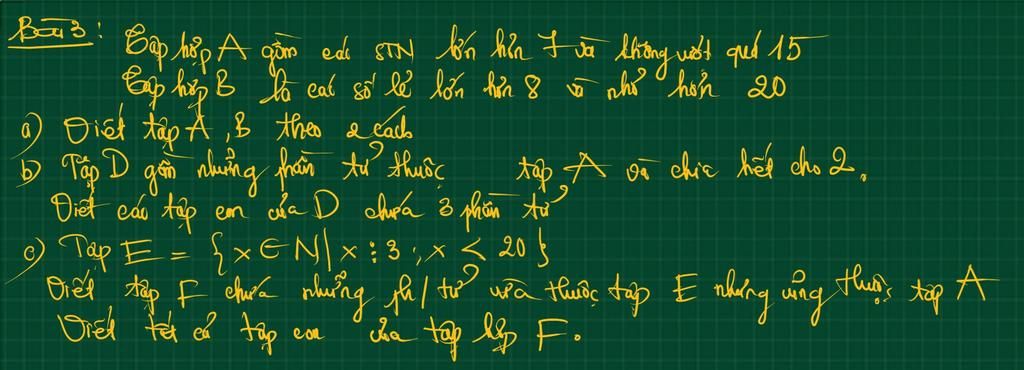 Bài 3: Tập hợp A gồm các STN lớn hơn 7 và không vượt quá 15
Tập hợp B là các số lẻ lớn hơn 8 và nhỏ hơn 20
a) Viết tập A, B theo 2 cách
b) Tập D gồm những phần tử thuộc tập A và chia hết cho 2.
Viết các tập con của D chứa 3 phần tử
c) Tập E = { x ∈ N | x ⋮ 3 ; x < 20 }
Viết tập F chứa những ph/tử vừa thuộc tập E nhưng cũng thuộc tập A
Viết tất cả tập con của tập hợp F.